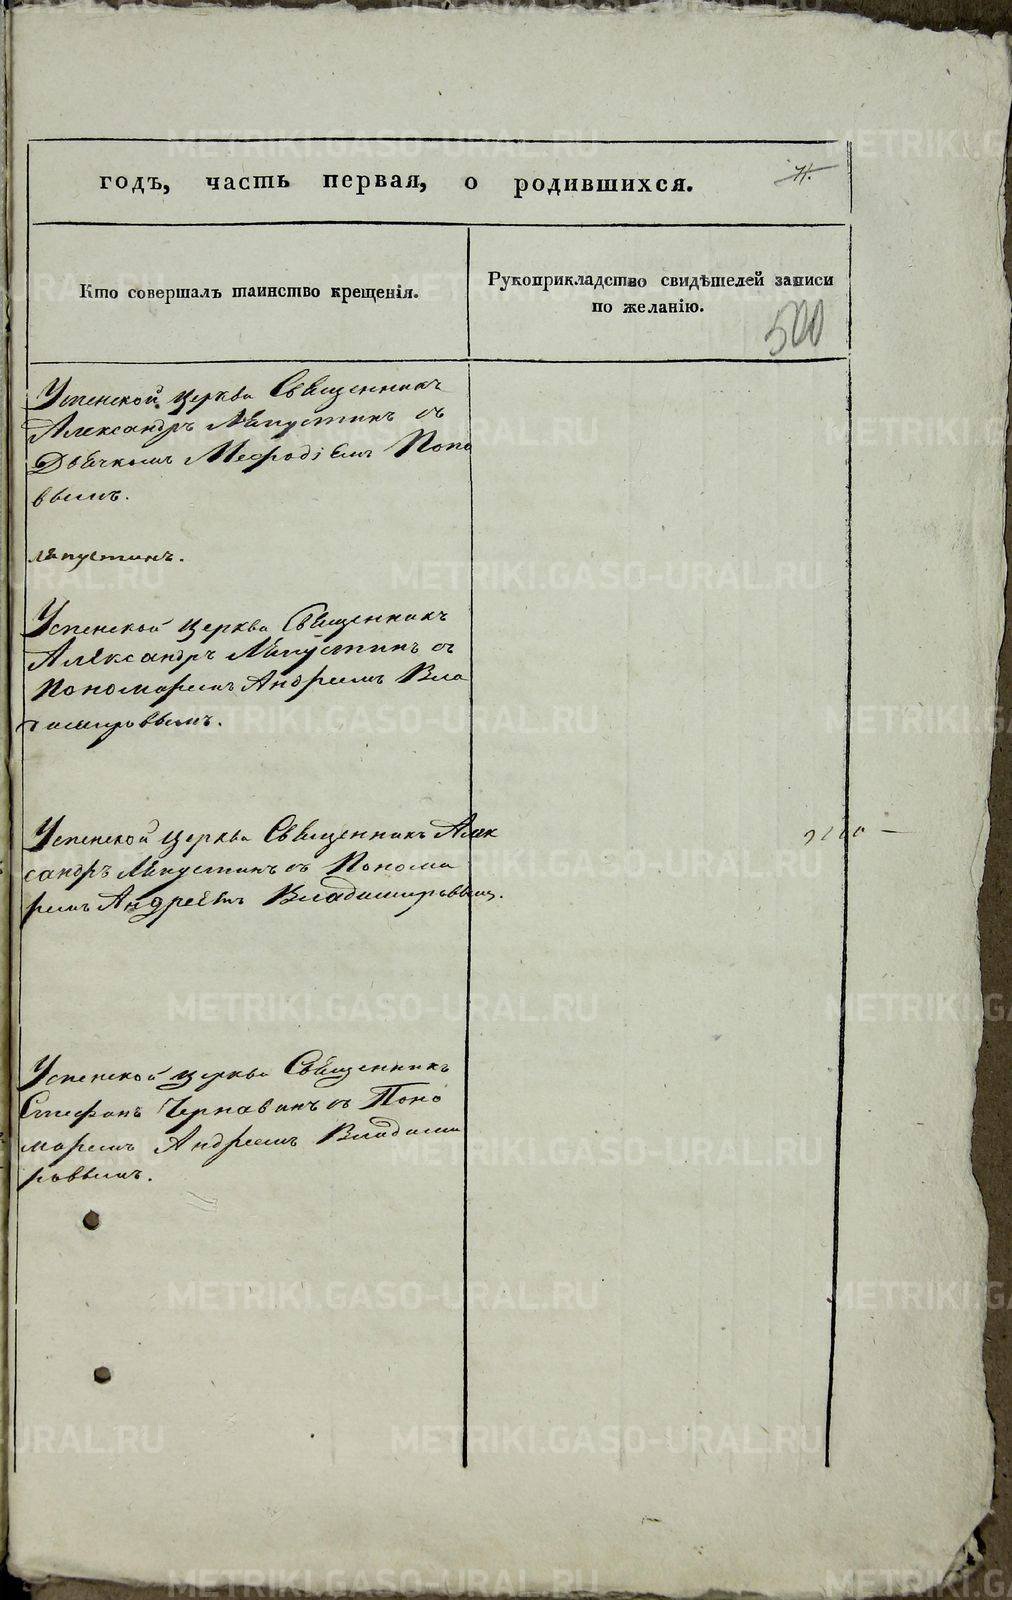 годъ, часть первая, о родившихся.
Кто совершалъ таинство крещенія.
Рукоприкладство свидѣтелей записи
по желанію.
500
Успенской церкви Священникъ
Александръ Ляпустинъ съ
Дьячкомъ Мефодіемъ Попо
вымъ.
Ляпустинъ.
Успенской церкви Священникъ
Александръ Ляпустинъ съ
Пономаремъ Андреемъ Вла
димировымъ.
Успенской церкви Священникъ Алек
сандръ Ляпустинъ съ Понома
ремъ Андреемъ Владимировым.
Успенской церкви Священникъ
Стефанъ Чернавинъ съ Поно
маремъ Андреемъ Владими
ровымъ.
METRIKI.GASO-URAL.RU